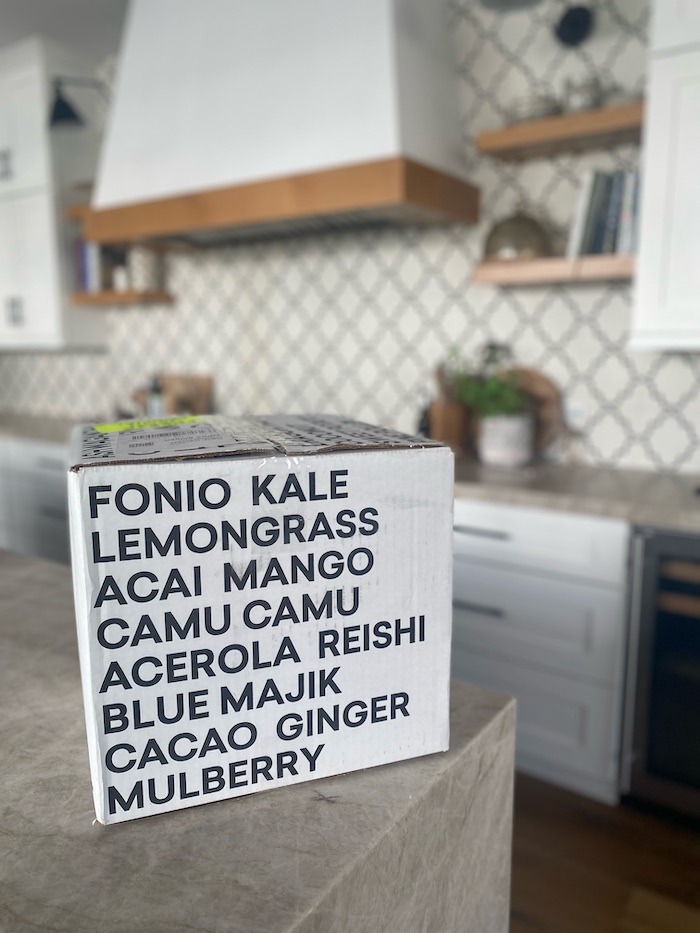 FONIO KALE
LEMONGRASS
ACAI MANGO
CAMU CAMU
ACEROLA REISHI
BLUE MAJIK
CACAO GINGER
MULBERRY